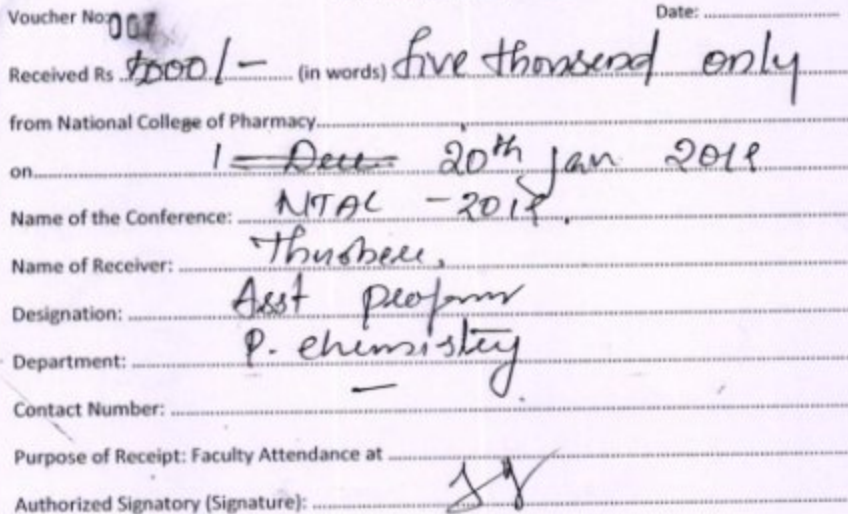 Voucher No: 007 Date: ..................
Received Rs . 5000/- (in words) five thousend only
from National College of Pharmacy
on 1 Dec 20th Jan 2019
Name of the Conference: NTAC - 2019.
Name of Receiver:
Designation: Asst
Department: P. chemistry
Contact Number: —
Purpose of Receipt: Faculty Attendance at
Authorized Signatory (Signature):